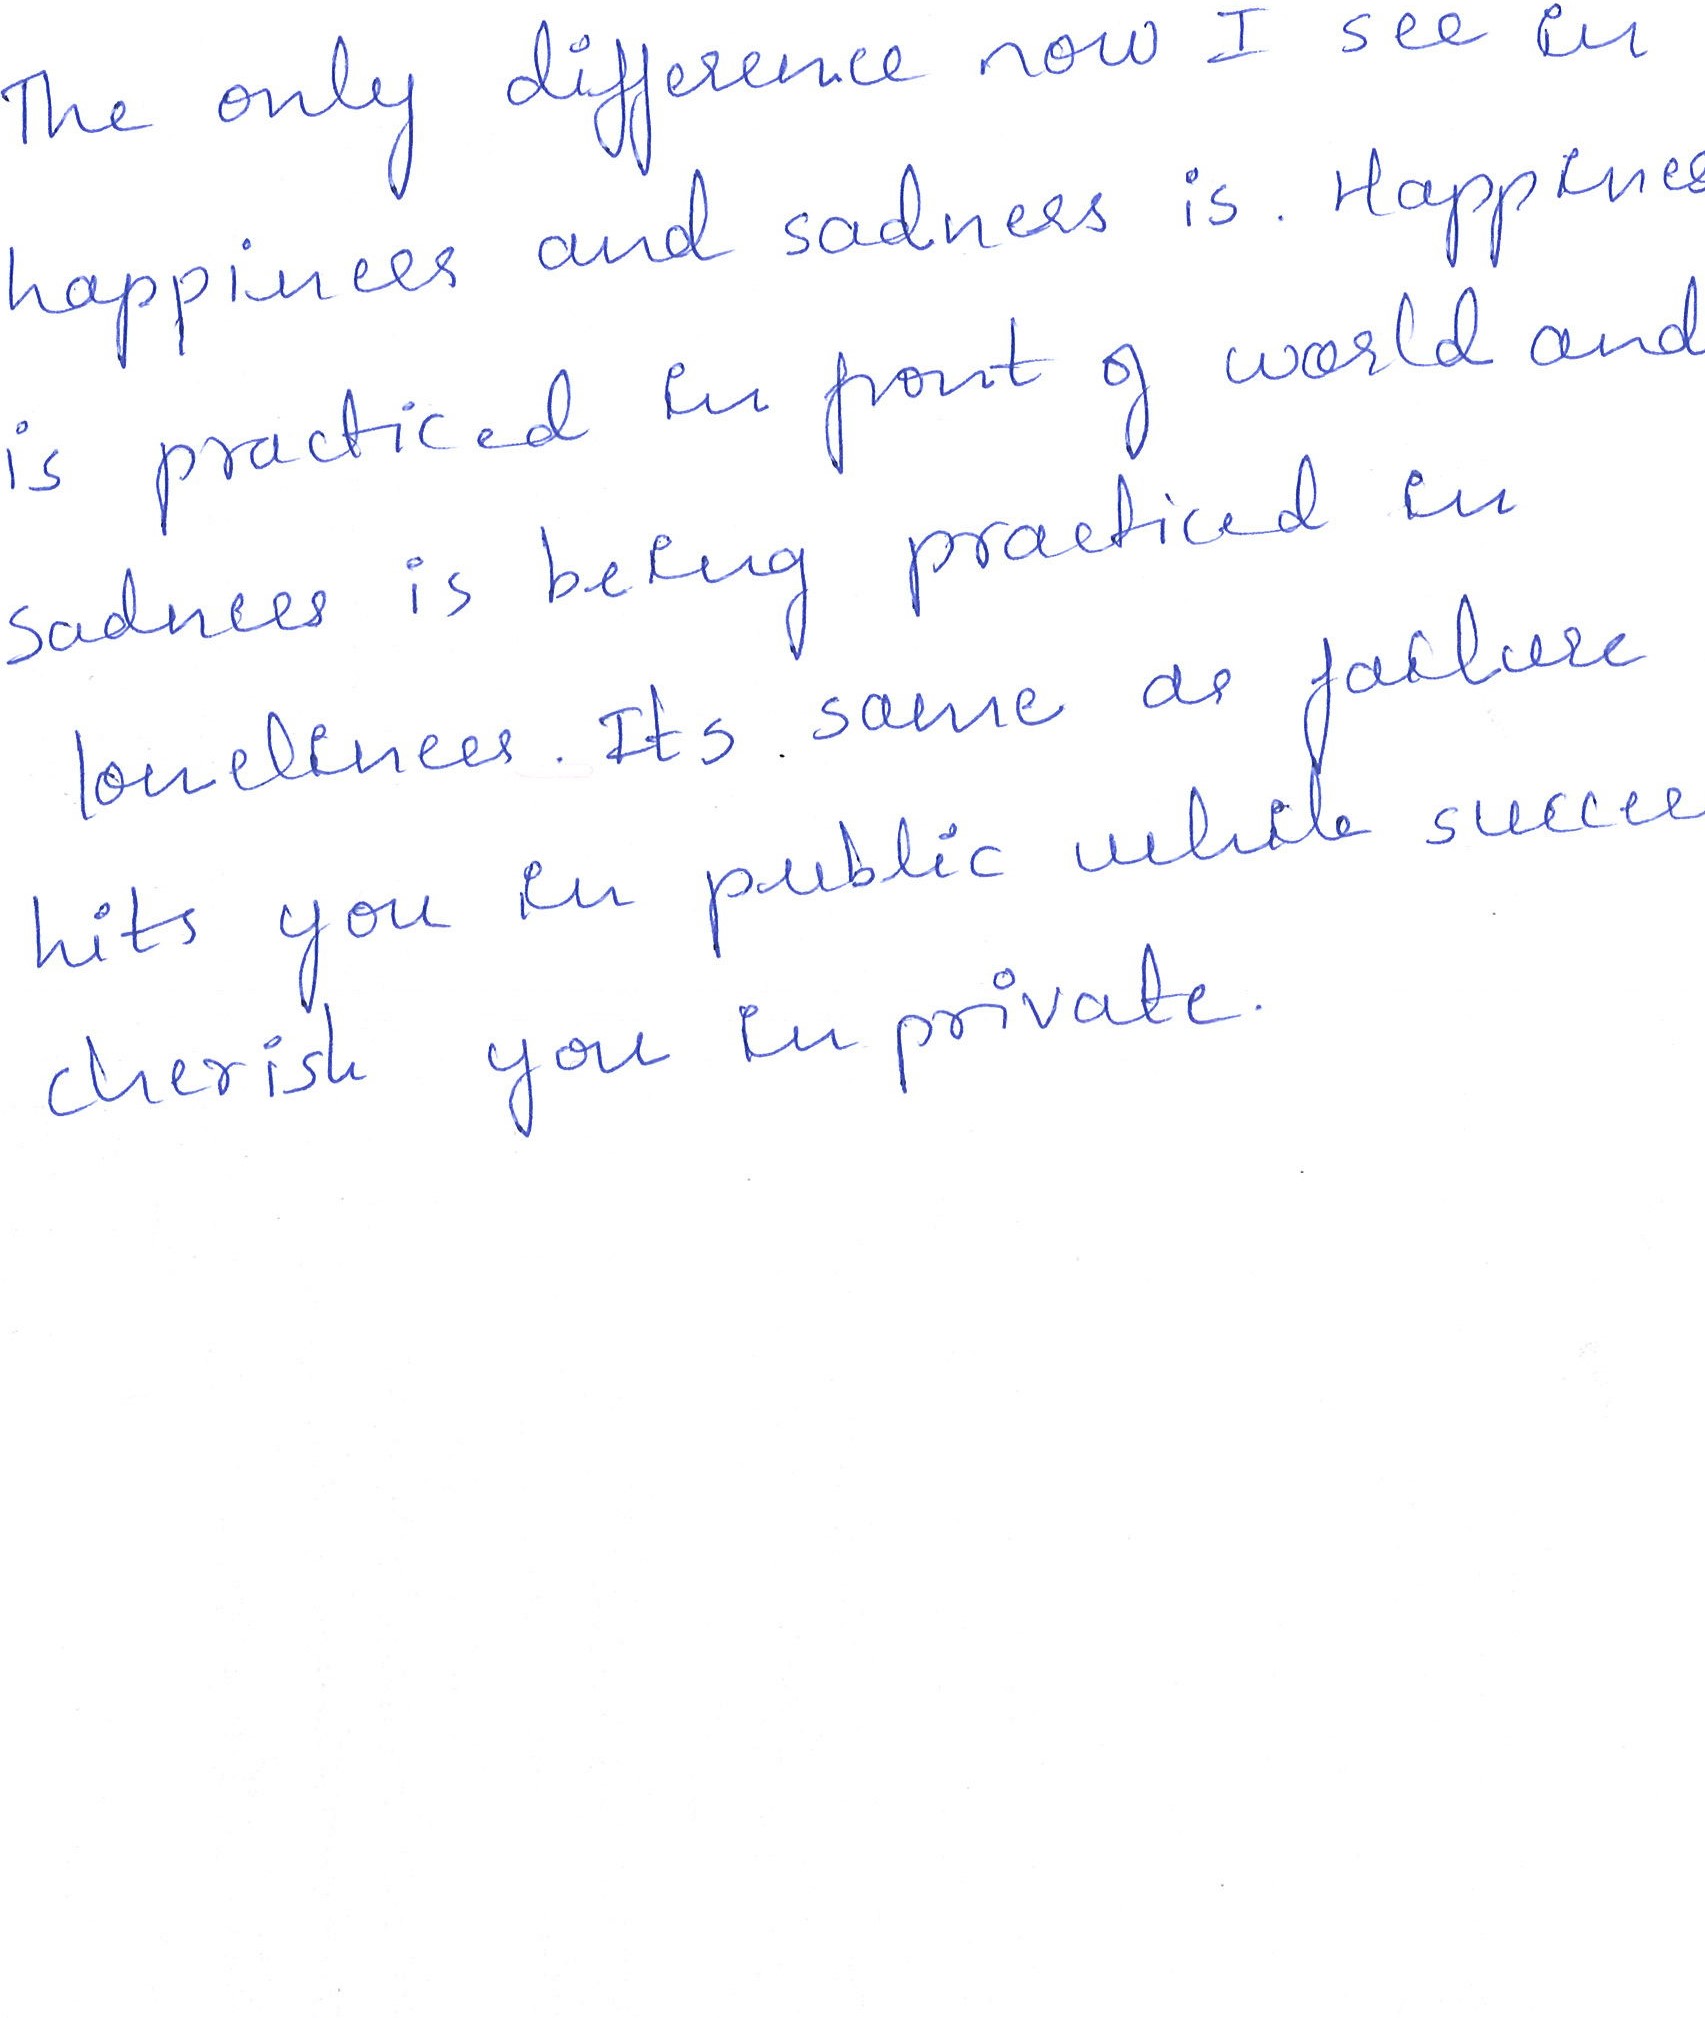 The only difference now I see in
happiness and sadness is. Happines
is practiced in front of world and
sadness is being practiced in
loneliness. Its. same as failure
hits you in public while succes
cherish you in private.